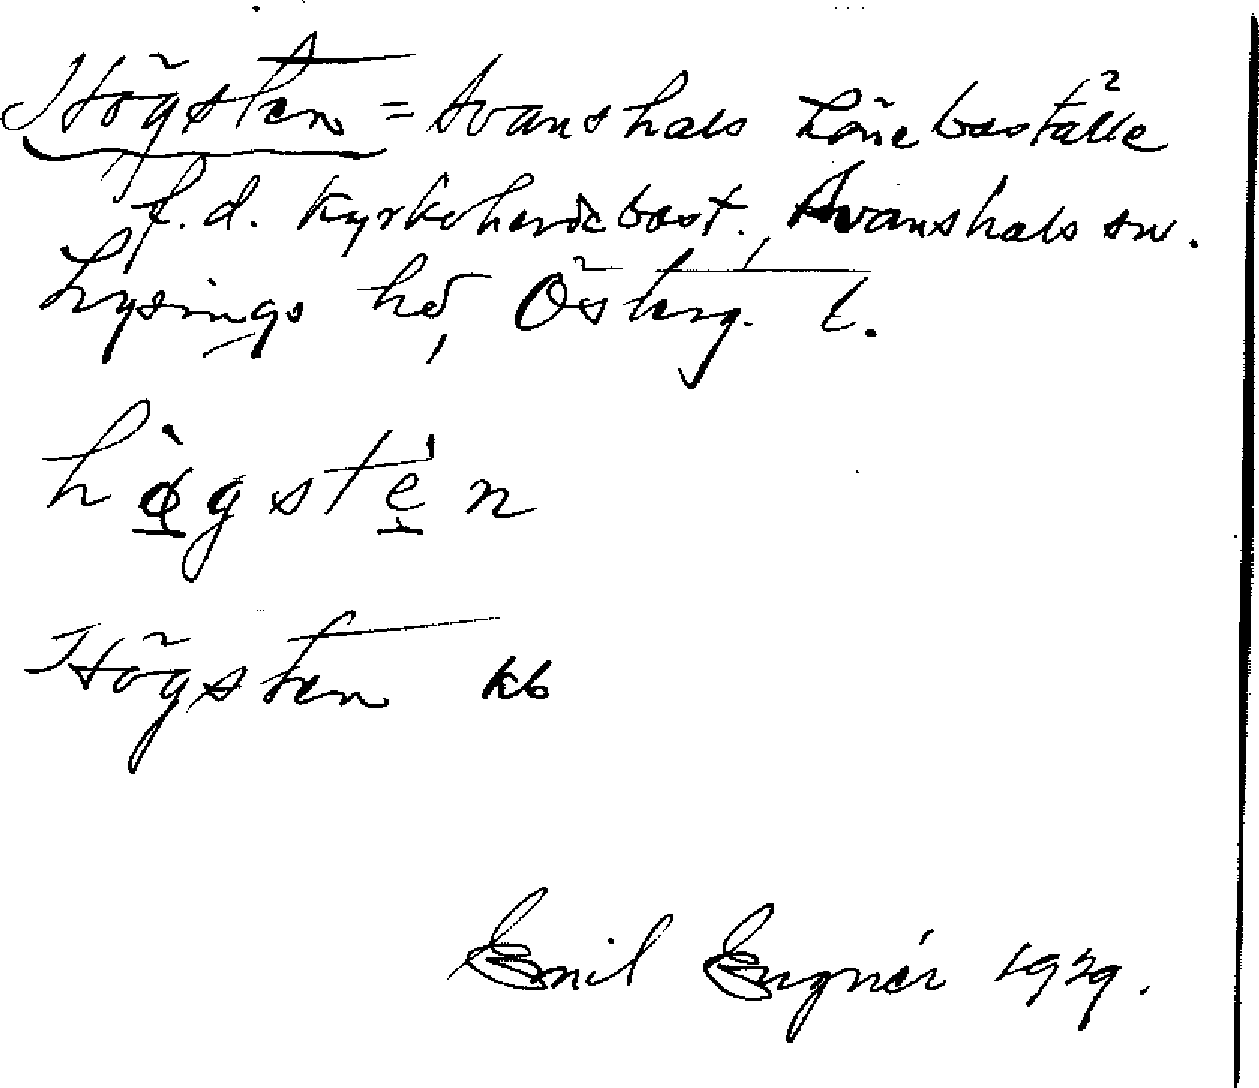 Högsten = Svanshals Löneboställe
f.d. Kyrkoherdebost., Svanshals sn.
Lysings hd, Österg. l.
hø̀gsté̱n
Högsten kb
Emil Engnér 1929.